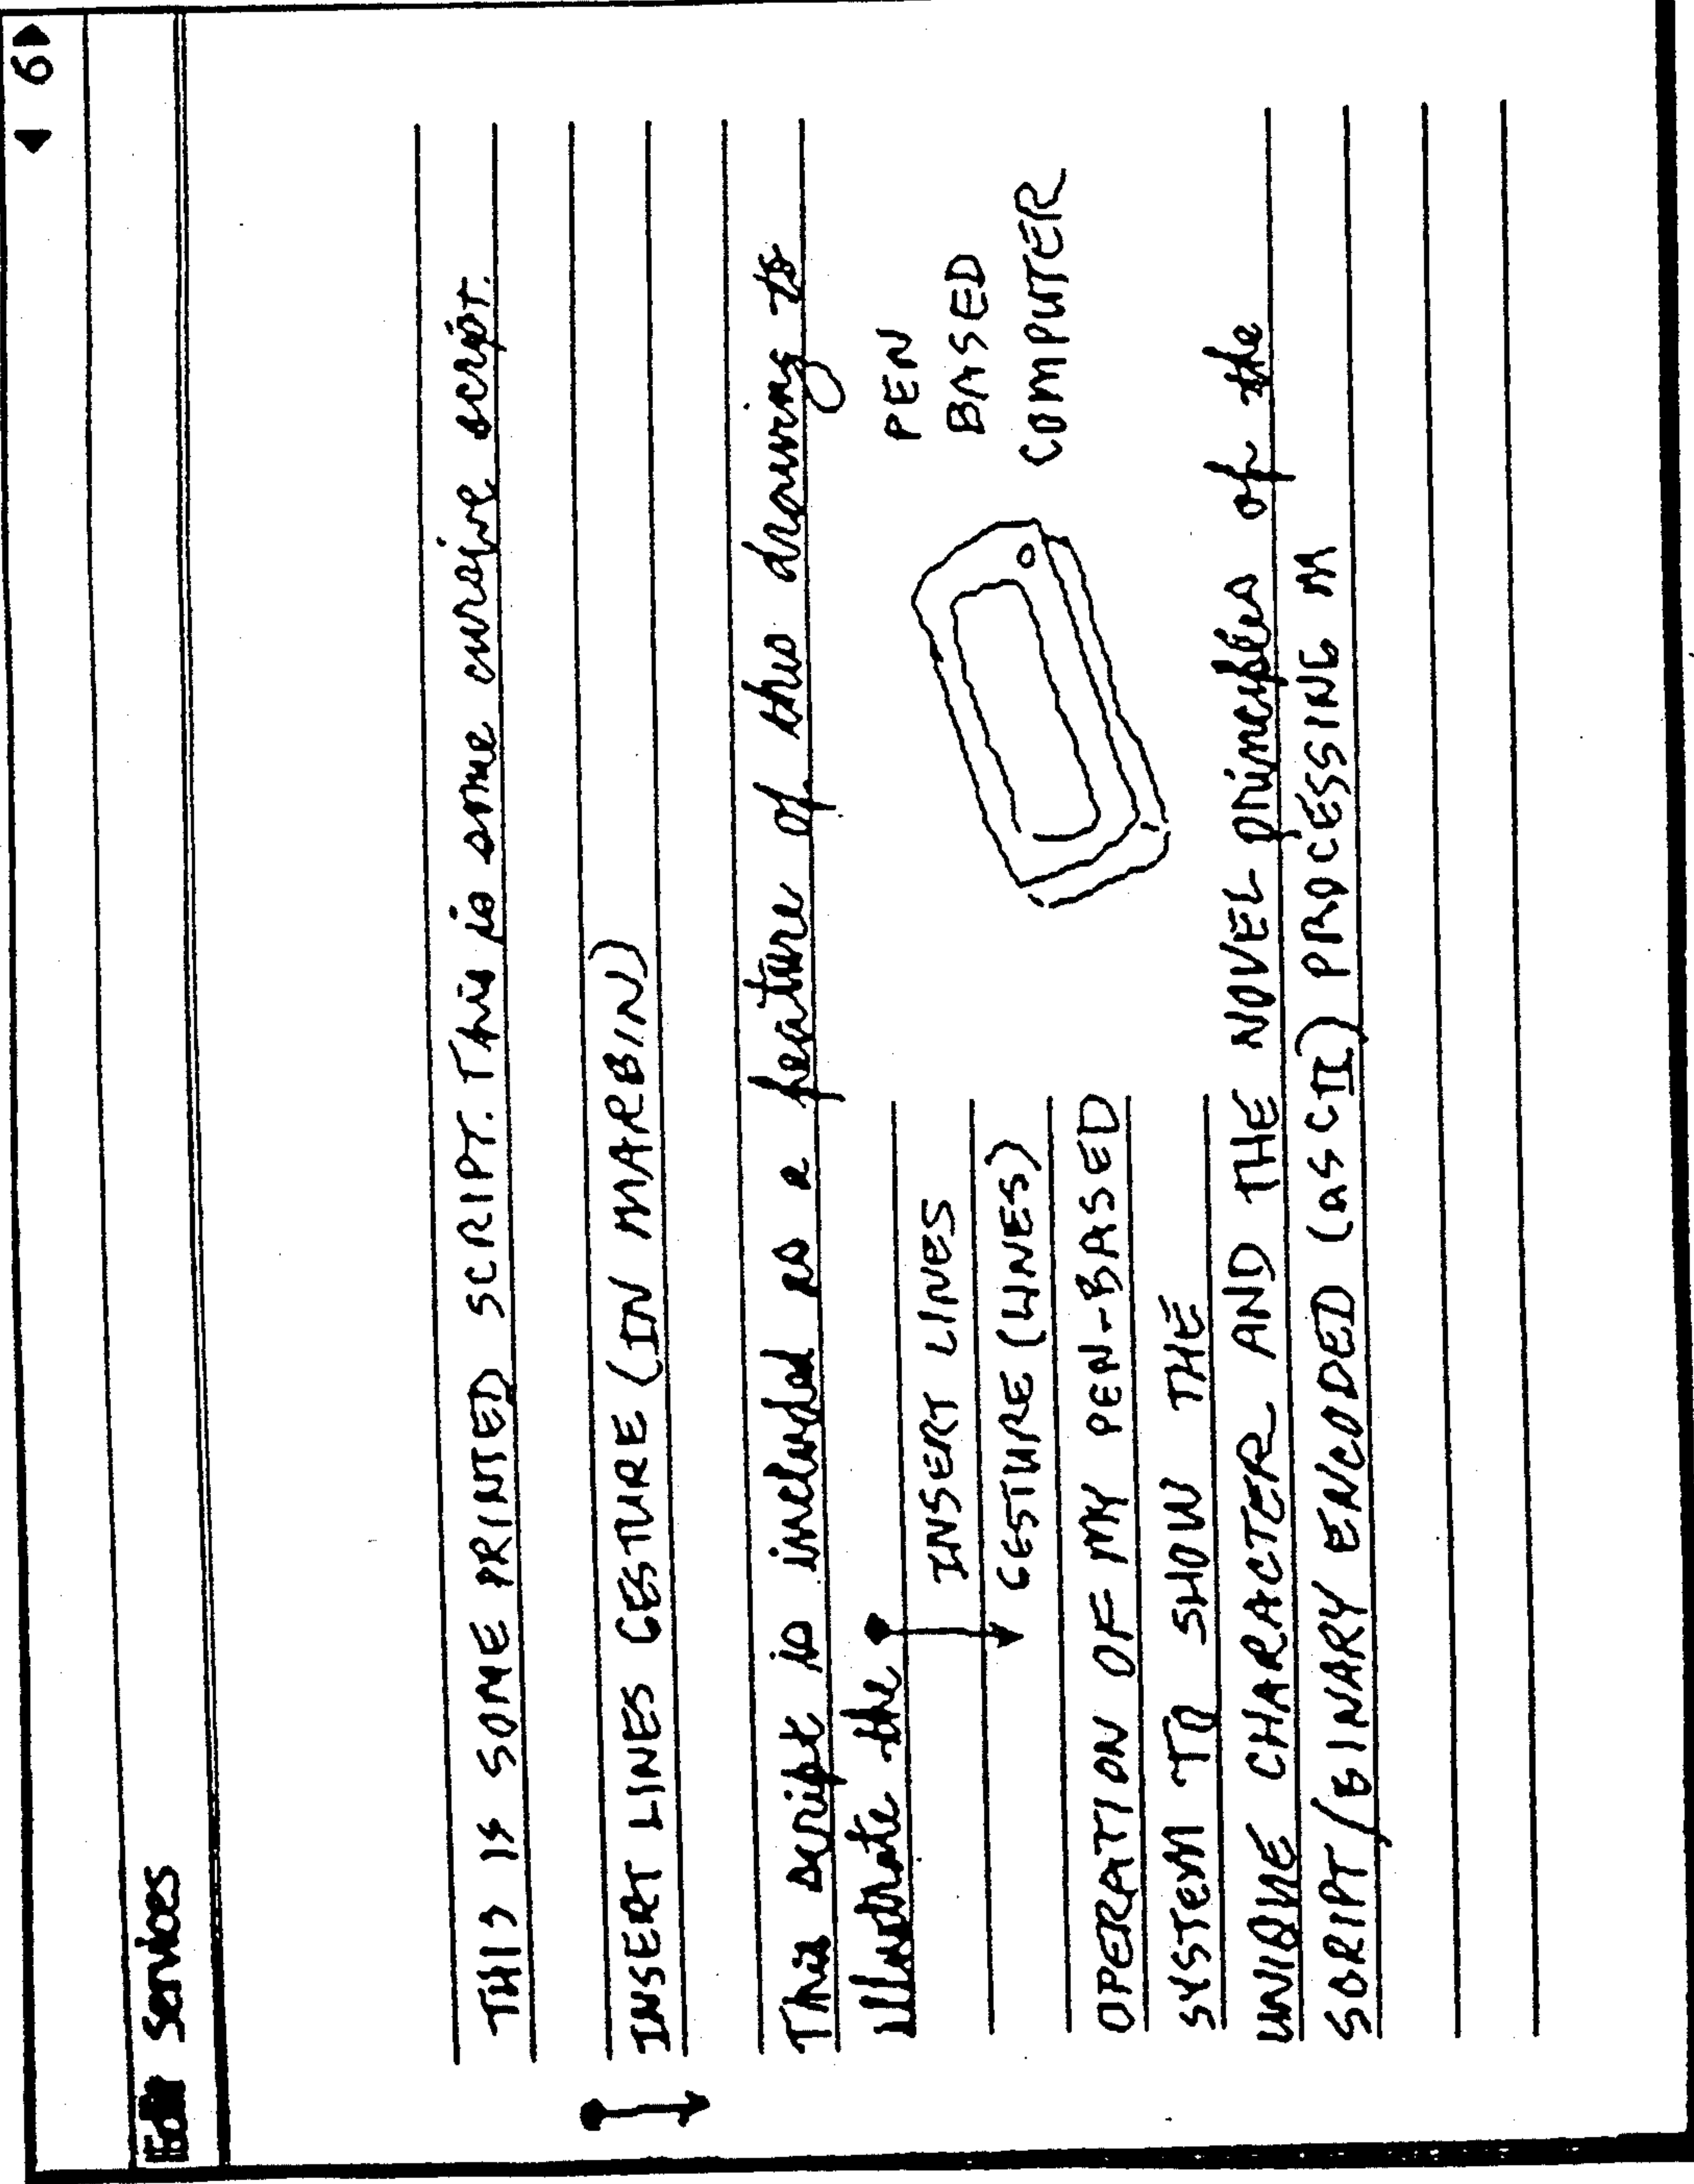 ◀ 6 ▶
Edit Services
THIS IS SOME PRINTED SCRIPT. This is some cursive script.
INSERT LINES GESTURE (IN MARGIN)
This script is included as a feature of this drawing to
illustrate the
INSERT LINES
GESTURE (LINES)
PEN
BASED
COMPUTER
OPERATION OF MY PEN-BASED
SYSTEM TO SHOW THE
UNIQUE CHARACTER AND THE NOVEL principles of the
SCRIPT/BINARY ENCODED (ASCII) PROCESSING M